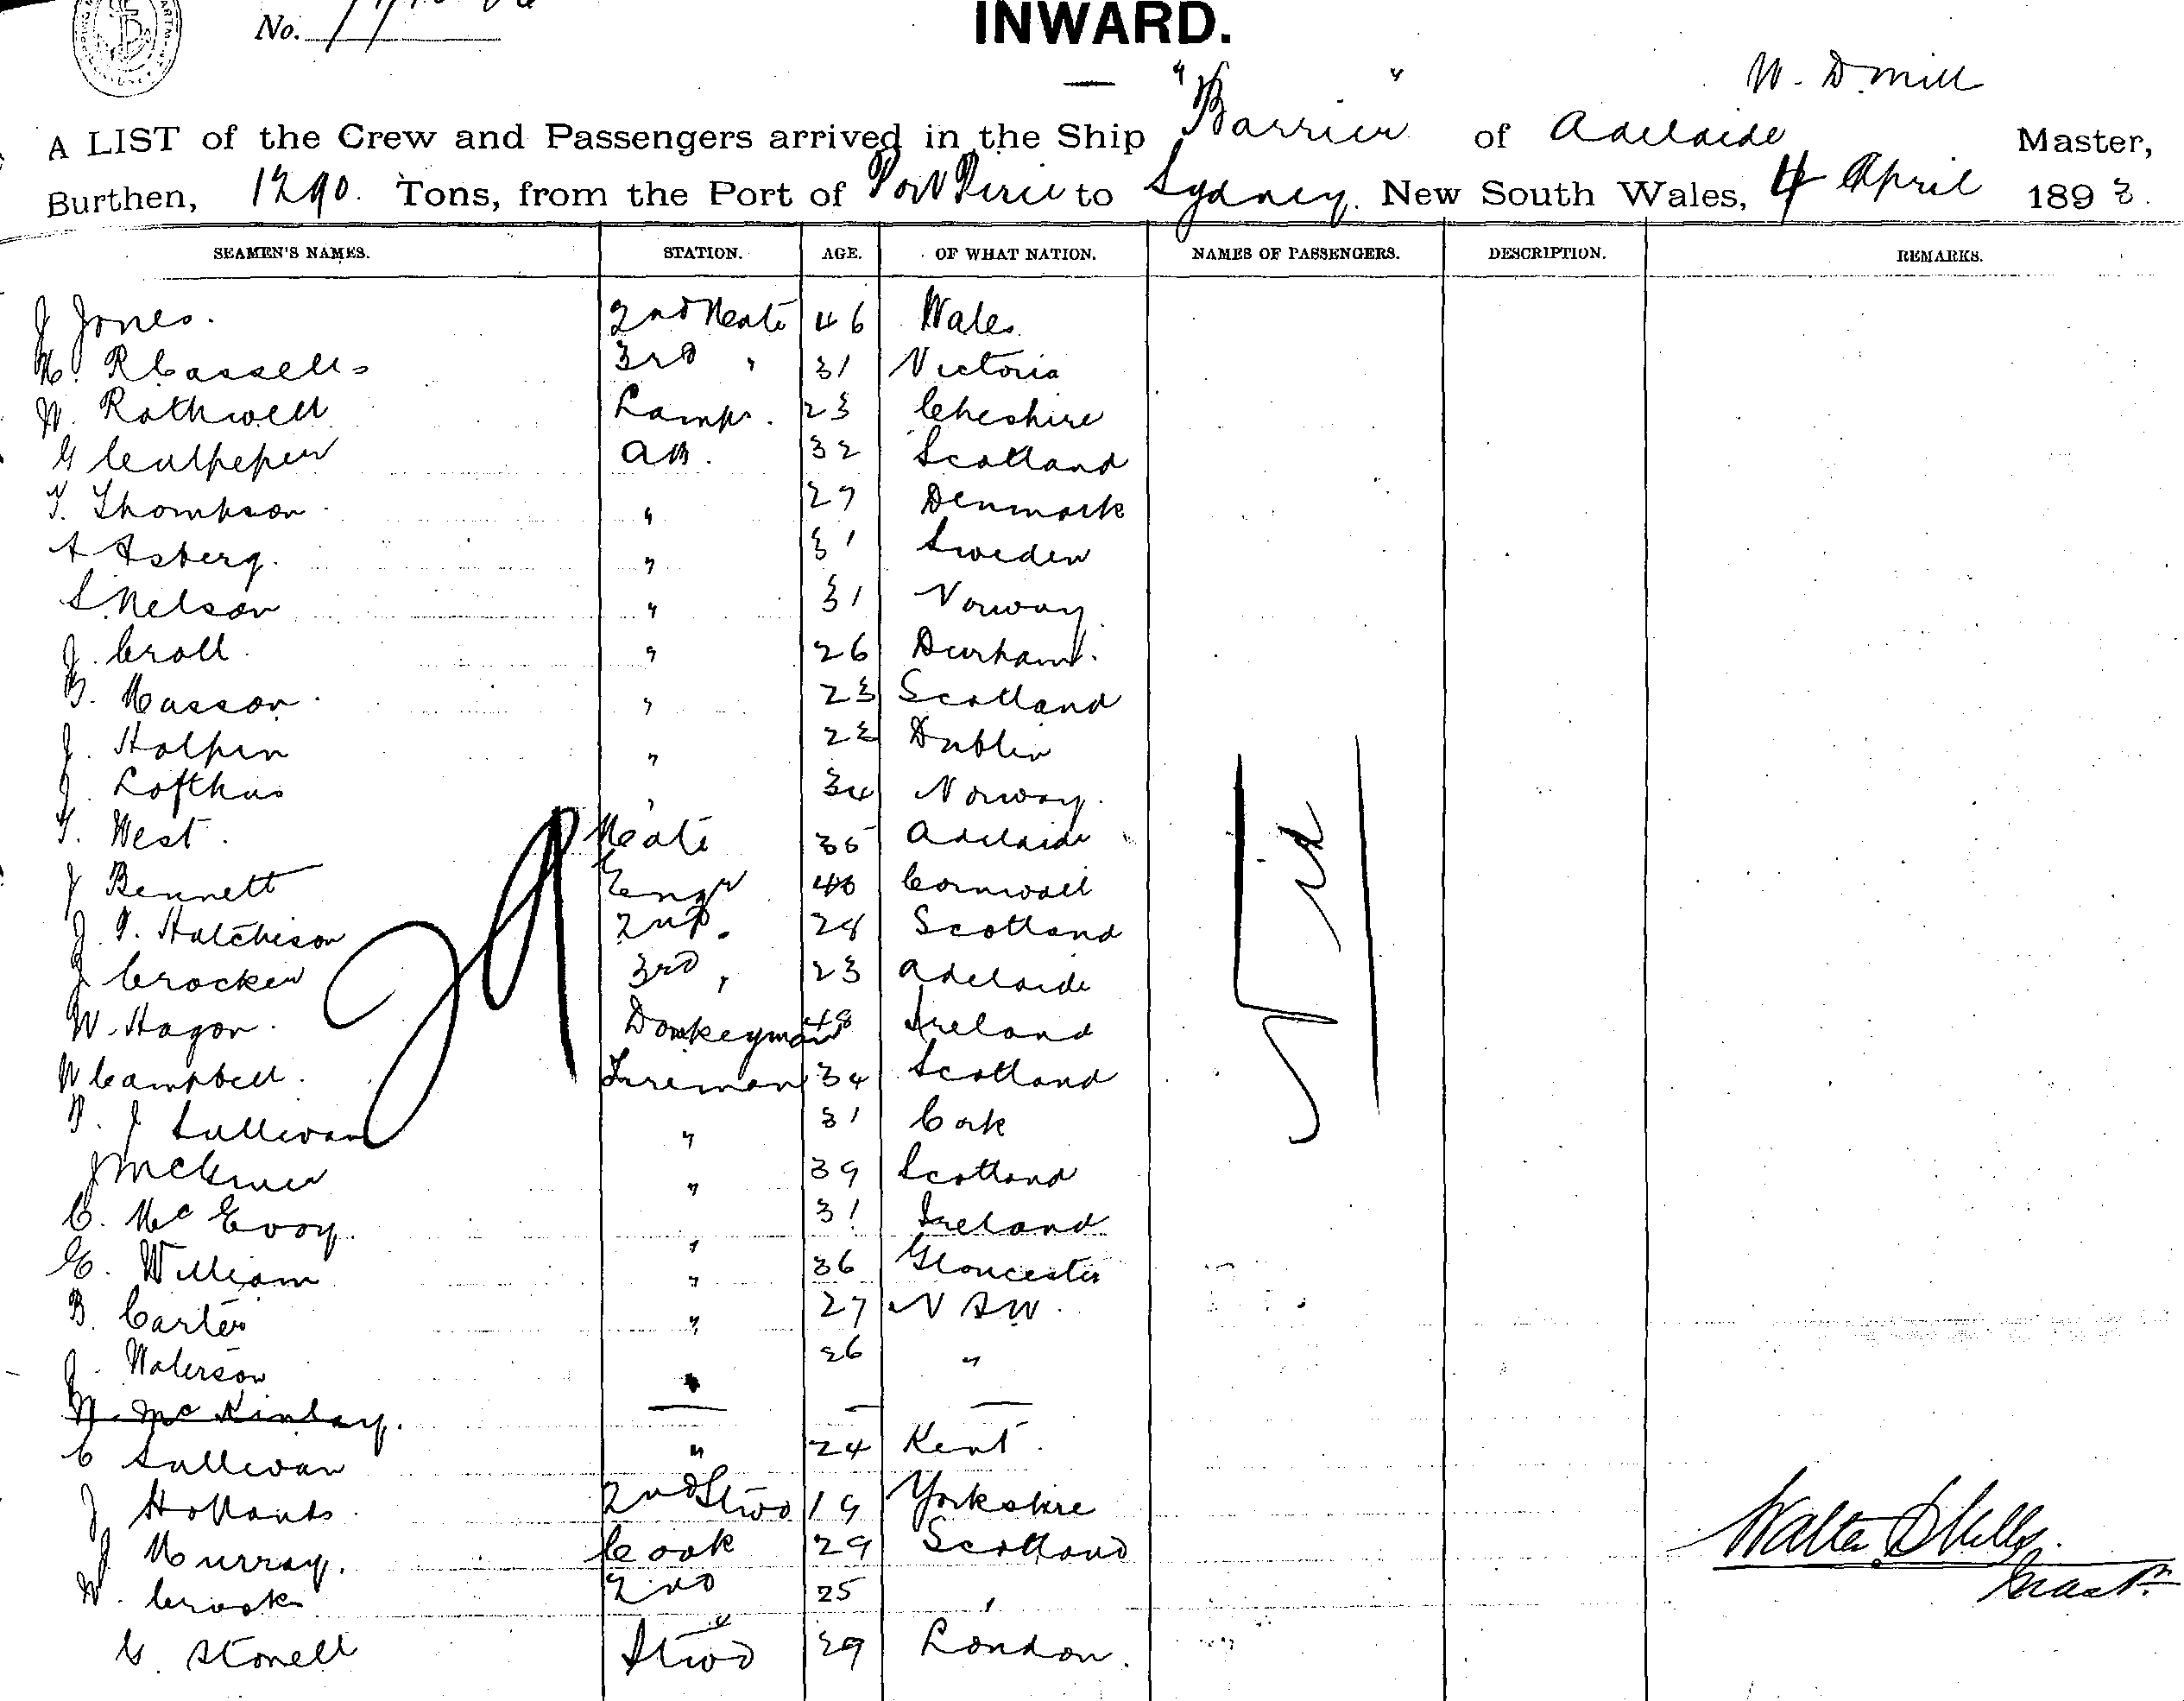 No.
INWARD.
W. D. Mill
A LIST of the Crew and Passengers arrived in the Ship "Barrier" of Adelaide Master,
Burthen, 1290. Tons, from the Port of Port Pirie to Sydney. New South Wales, 4 April 1893.
SEAMEN'S NAMES. STATION. AGE. OF WHAT NATION. NAMES OF PASSENGERS. DESCRIPTION. REMARKS.
J Jones. 2nd Mate 46 Wales
R Cassells 3rd " 31 Victoria
W. Rothwell Lamps. 23 Cheshire
G Culpeper AB. 32 Scotland
T. Thompson " 27 Denmark
A Asberg. " 31 Sweden
S. Nelson " 31 Norway
J. Croll " 26 Durham.
B. Masson " 23 Scotland
J. Halpin " 23 Dublin
J. Lofthus " 34 Norway.
T. West. Mate 35 Adelaide
J Bennett Engr 40 Cornwall
J. T. Hutchison 2nd " 28 Scotland
J Crocker 3rd " 23 Adelaide
W. Hagon. Donkeyman 48 Ireland
W Campbell. Fireman 34 Scotland
P. J Sullivan " 31 Cork
J " 39 Scotland
C. McEvoy. " 31 Ireland
E. William " 36 Gloucester
B. Carter " 27 N S W.
J. Waterson " 26 "
W. McKinlay. — — —
C Sullivan " 24 Kent.
J Hollands 2nd Stwd 19 Yorkshire
J Murray. Cook 29 Scotland
W. Crook 2nd " 25 "
G. Stonell Stwd 29 London.
Nil
Walter D Mills.
Master